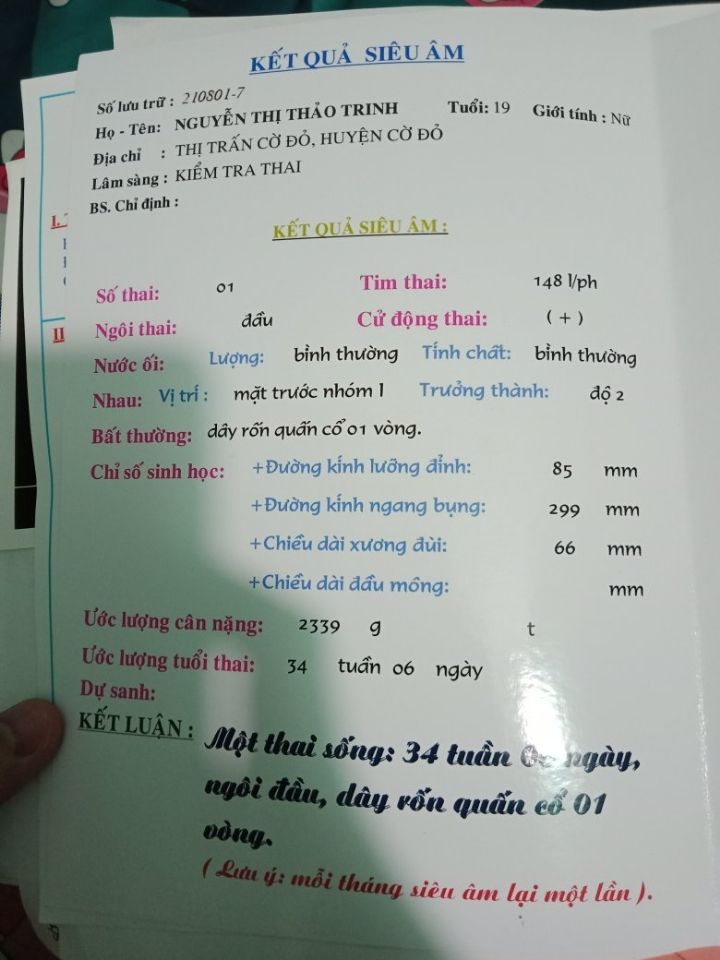 KẾT QUẢ SIÊU ÂM
Số lưu trữ : 210801-7
Họ - Tên: NGUYỄN THỊ THẢO TRINH Tuổi: 19 Giới tính : Nữ
Địa chỉ : THỊ TRẤN CỜ ĐỎ, HUYỆN CỜ ĐỎ
Lâm sàng : KIỂM TRA THAI
BS. Chỉ định :
KẾT QUẢ SIÊU ÂM :
Số thai: 01 Tim thai: 148 l/ph
Ngôi thai: đầu Cử động thai: ( + )
Nước ối: Lượng: bình thường Tính chất: bình thường
Nhau: Vị trí : mặt trước nhóm I Trưởng thành: độ 2
Bất thường: dây rốn quấn cổ 01 vòng.
Chỉ số sinh học: +Đường kính lưỡng đỉnh: 85 mm
+Đường kính ngang bụng: 299 mm
+Chiều dài xương đùi: 66 mm
+Chiều dài đầu mông: mm
Ước lượng cân nặng: 2339 g t
Ước lượng tuổi thai: 34 tuần 06 ngày
Dự sanh:
KẾT LUẬN : Một thai sống: 34 tuần 06 ngày,
ngôi đầu, dây rốn quấn cổ 01
vòng.
( Lưu ý: mỗi tháng siêu âm lại một lần ).